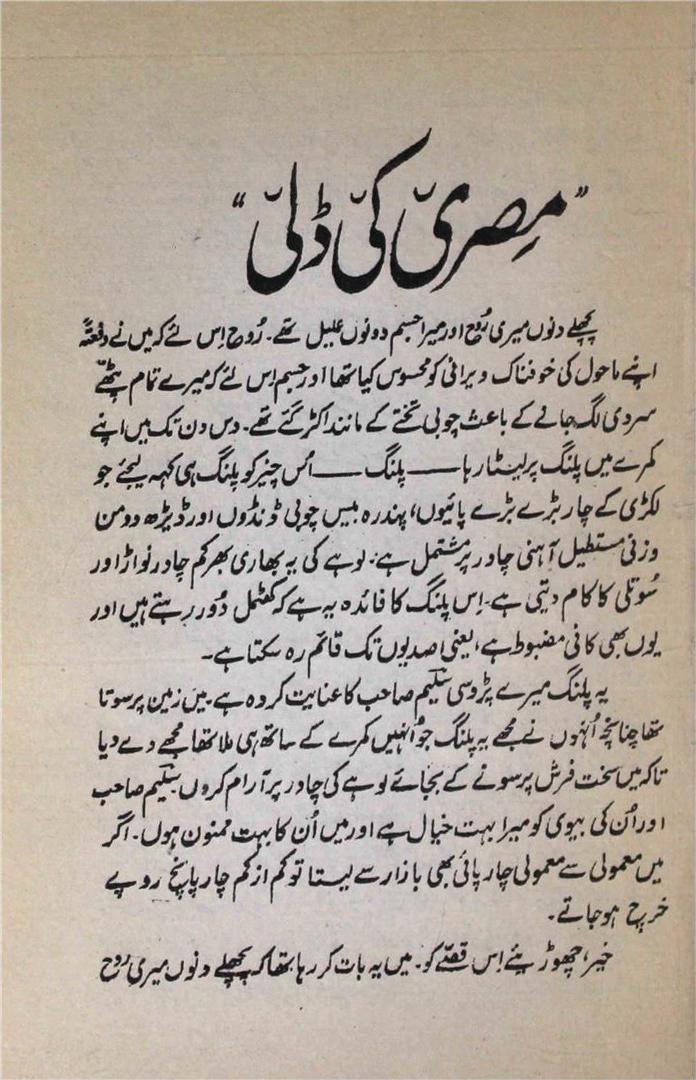 "مِصریّ کیّ ڈلیّ"
پچھلے دنوں میری رُوح اور میرا جسم دونوں علیل تھے۔ رُوح اِس لئے کہ میں نے دفعتہً
اپنے ماحول کی خوفناک ویرانی کو محسوس کیا تھا اور جسم اِس لئے کہ میرے تمام پٹھّے
سردی لگ جانے کے باعث چوبی تختے کے مانند اکڑ گئے تھے۔ دس دن تک میں اپنے
کمرے میں پلنگ پر لیٹا رہا —— پلنگ —— اُس چیز کو پلنگ ہی کہہ لیجئے جو
لکڑی کے چار بڑے بڑے پائیوں، پندرہ بیس چوبی ڈنڈوں اور ڈیڑھ دو من
وزنی مستطیل آہنی چادر پر مشتمل ہے۔ لوہے کی یہ بھاری بھرکم چادر نواڑ اور
سُوتلی کا کام دیتی ہے۔ اِس پلنگ کا فائدہ یہ ہے کہ کھٹمل دُور رہتے ہیں اور
یوں بھی کافی مضبوط ہے، یعنی صدیوں تک قائم رہ سکتا ہے۔
یہ پلنگ میرے پڑوسی سلیم صاحب کا عنایت کردہ ہے۔ میں زمین پر سوتا
تھا چنانچہ اُنہوں نے مجھے یہ پلنگ جو اُنہیں کمرے کے ساتھ ہی ملا تھا مجھے دے دیا
تاکہ میں سخت فرش پر سونے کے بجائے لوہے کی چادر پر آرام کروں۔ سلیم صاحب
اور اُن کی بیوی کو میرا بہت خیال ہے اور میں اُن کا بہت ممنون ہوں۔ اگر
میں معمولی سے معمولی چارپائی بھی بازار سے لیتا تو کم از کم چار پانچ روپے
خرچ ہو جاتے۔
خیر، چھوڑیئے اِس قصّے کو۔ میں یہ بات کر رہا تھا کہ پچھلے دنوں میری روح